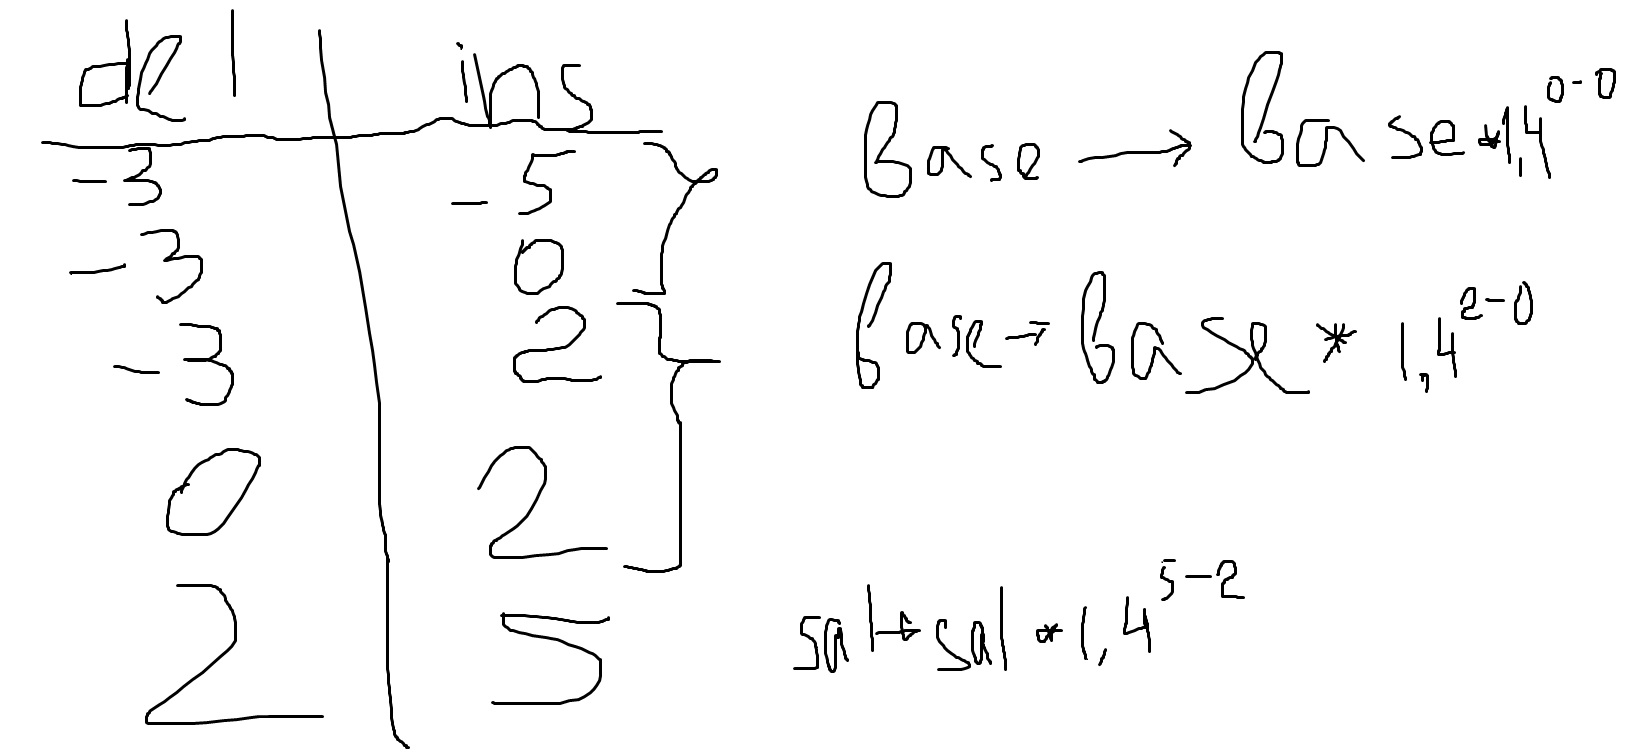 del ins
-3 -5
-3 0
-3 2
0 2
2 5
Base → base*1,4^0-0
base → base * 1,4^2-0
sal → sal * 1,4^5-2